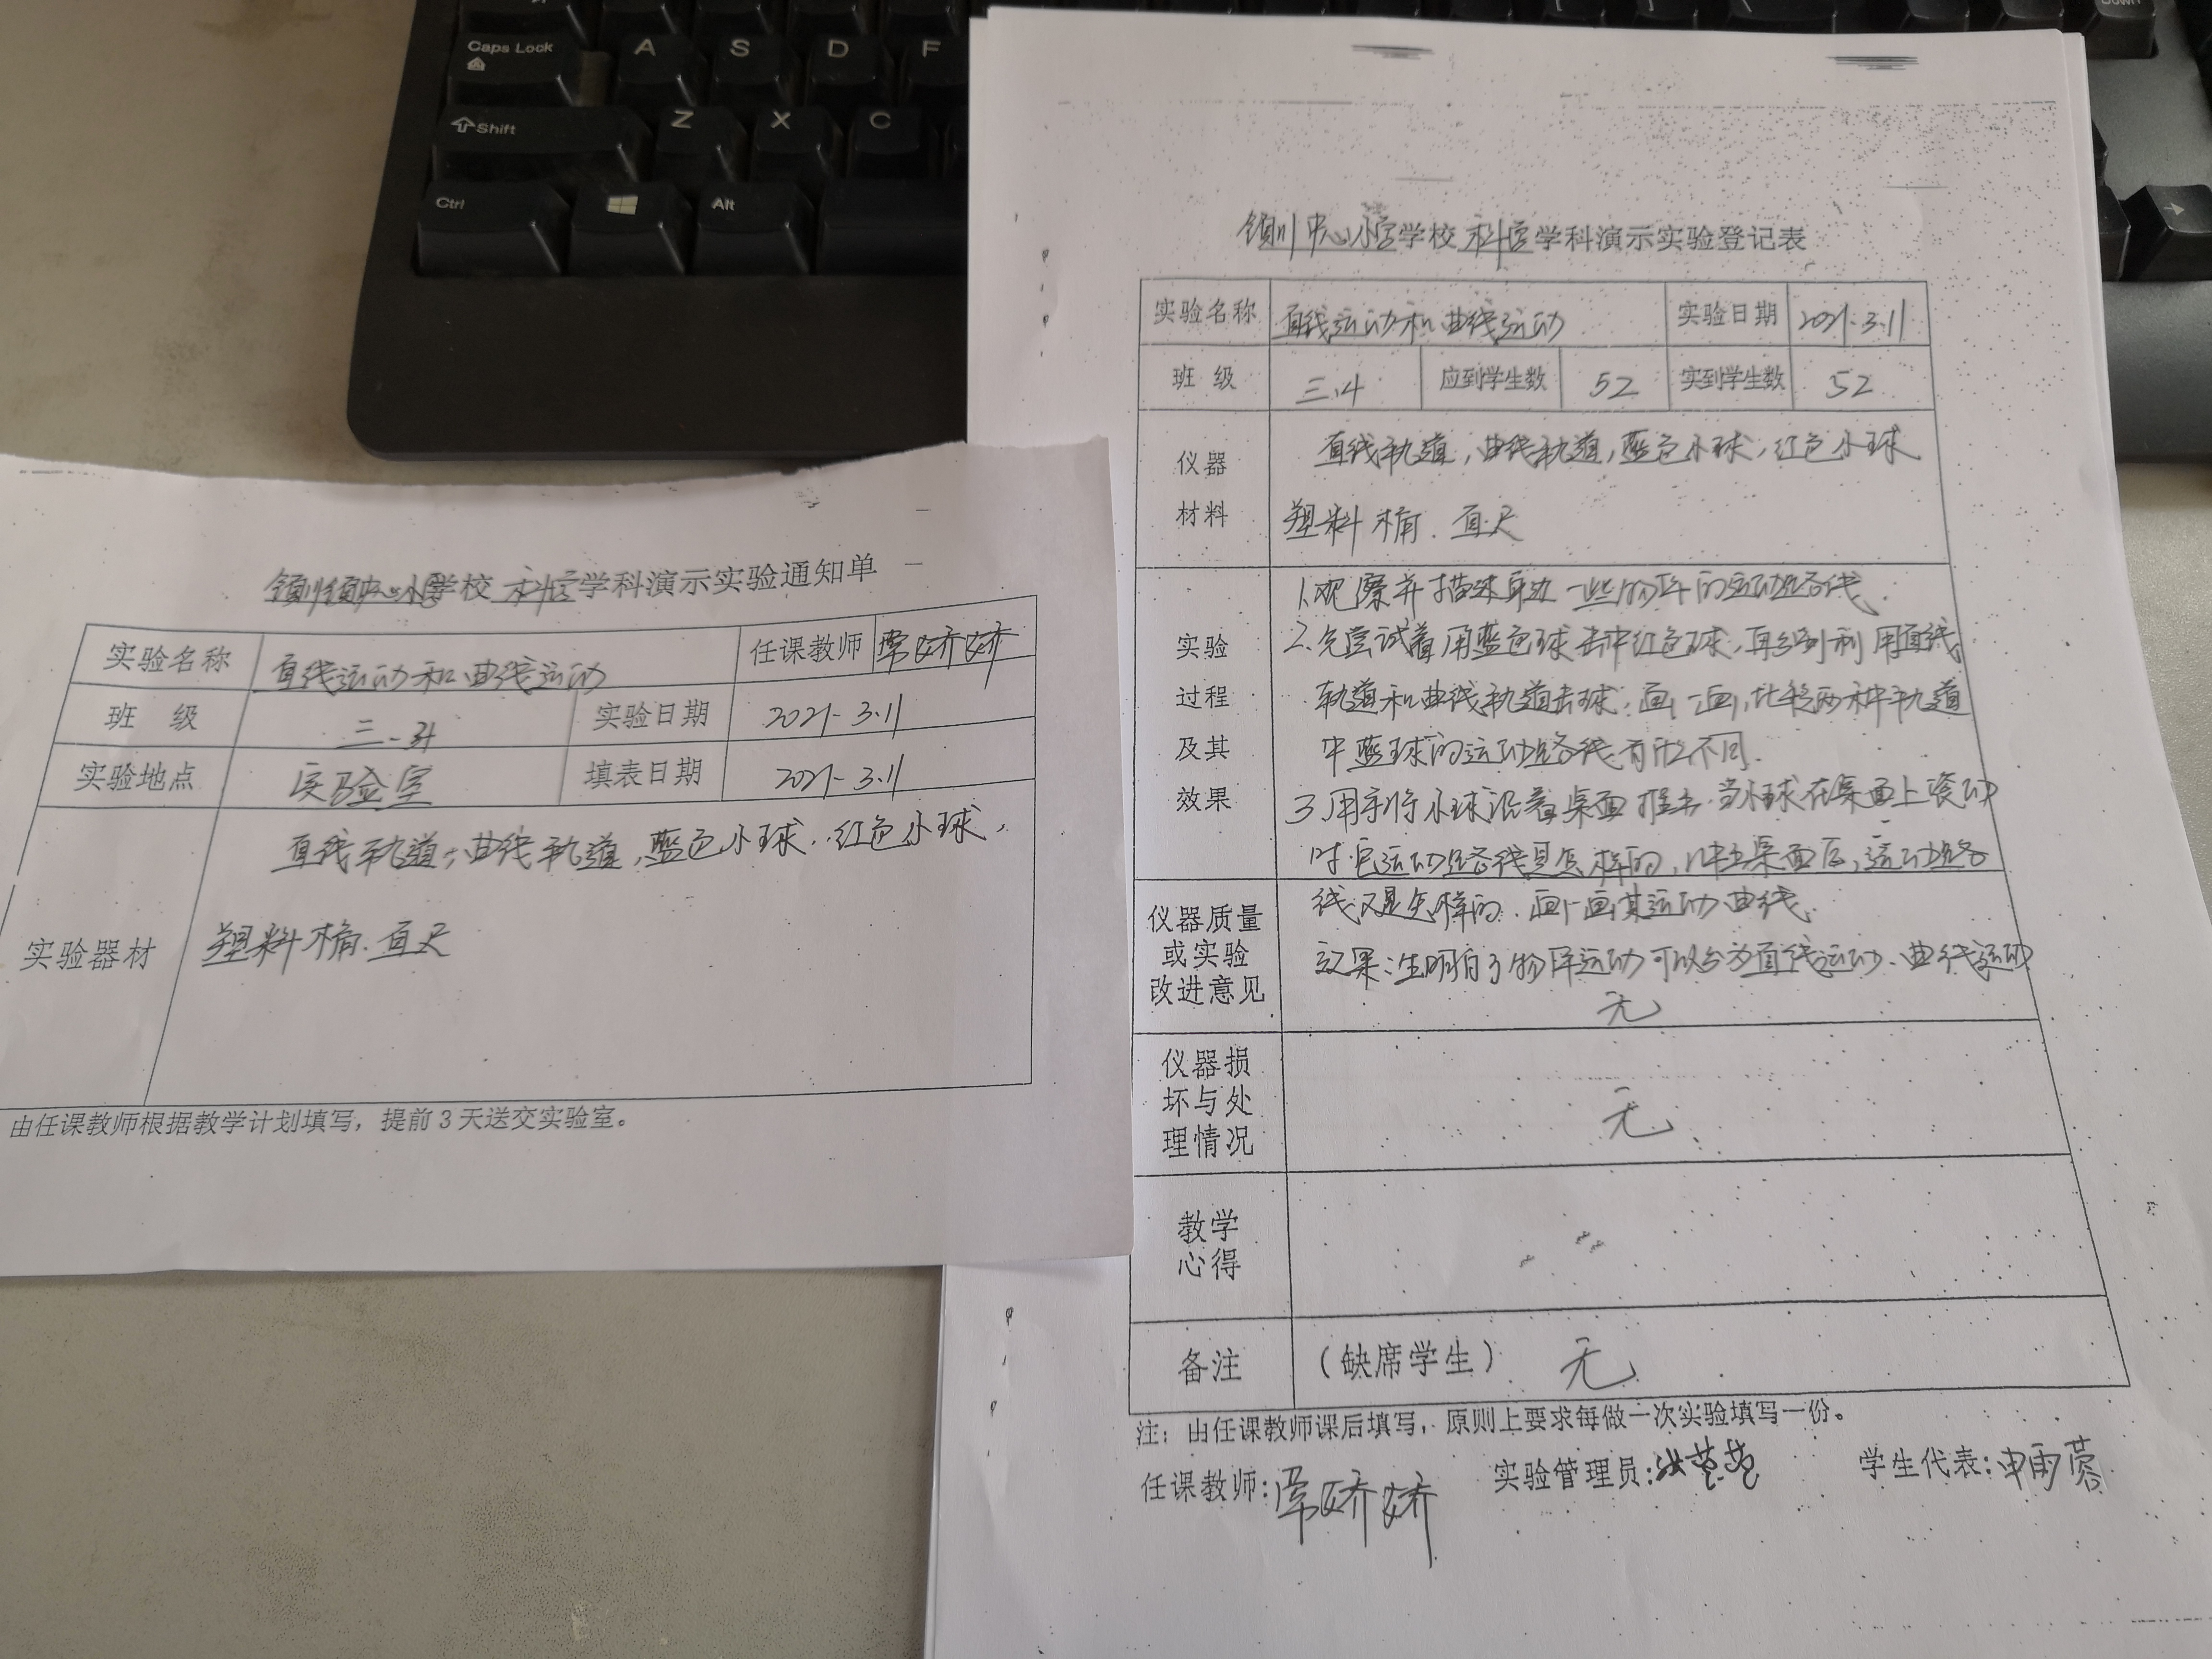 Caps Lock
A
S
D
F
Shift
Z
X
C
Ctrl
Alt
中心小学学校 科学学科演示实验通知单
实验名称 直线运动和曲线运动 任课教师 常娇娇
班 级 三. 实验日期 2021.3.11
实验地点 实验室 填表日期 2021.3.11
直线轨道,曲线轨道,蓝色小球.红色小球,
实验器材 塑料桶.直尺
由任课教师根据教学计划填写,提前3天送交实验室。
中心小学学校 科学学科演示实验登记表
实验名称 直线运动和曲线运动 实验日期 2021.3.11
班 级 三.4 应到学生数 52 实到学生数 52
仪器 直线轨道,曲线轨道,蓝色小球,红色小球
材料 塑料桶.直尺
1.观察并描述身边一些物体的运动路线.
实验 2.先尝试着用蓝色球击中红色球,再分别利用直线
过程 轨道和曲线轨道击球,画一画,比较两种轨道
及其 中蓝球的运动路线有什么不同.
效果 3.用手将小球沿着桌面推出.当小球在桌面上滚动
时.它运动路线是怎样的,冲出桌面后,运动路
仪器质量 线又是怎样的.画一画其运动曲线.
或实验
改进意见 效果:生明白了物体运动可以分为直线运动.曲线运动
无
仪器损
坏与处 无
理情况
教学
心得
备注 (缺席学生) 无
注:由任课教师课后填写,原则上要求每做一次实验填写一份。
任课教师:常娇娇 实验管理员: 学生代表:申雨蓉